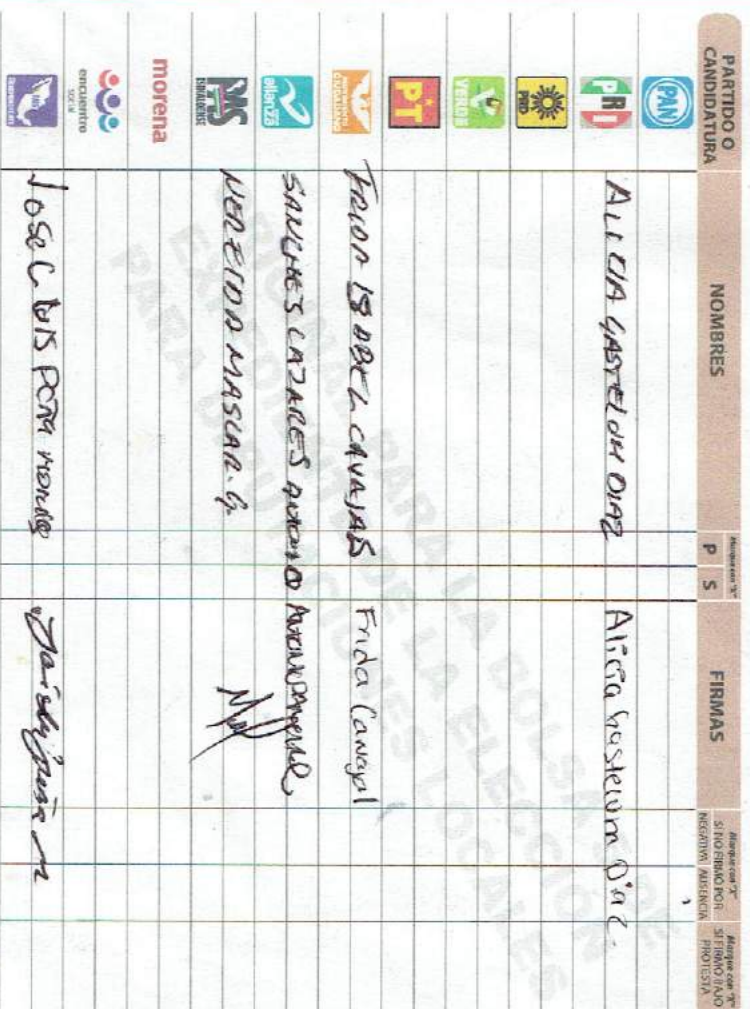 PARTIDO O CANDIDATURA
NOMBRES
Marque con "X"
P S
FIRMAS
Marque con "X" SI NO FIRMÓ POR
NEGATIVA AUSENCIA
Marque con "X" SI FIRMÓ BAJO PROTESTA
PAN
PRI
ALICIA GASTELUM DIAZ Alicia Gastelum Diaz
PRD
VERDE
PT
MOVIMIENTO CIUDADANO
FRIDA ISABEL CAVAJAS Frida Cavajal
alianza
SANCHES CAZARES ANTONIO
PAS
SINALOENSE
NEREIDA MASCAR. G.
morena
encuentro
social
INDEPENDIENTE
Jose Luis PEÑA
ORIGINAL PARA LA BOLSA DE
EXPEDIENTE DE LA ELECCIÓN
PARA DIPUTACIONES LOCALES